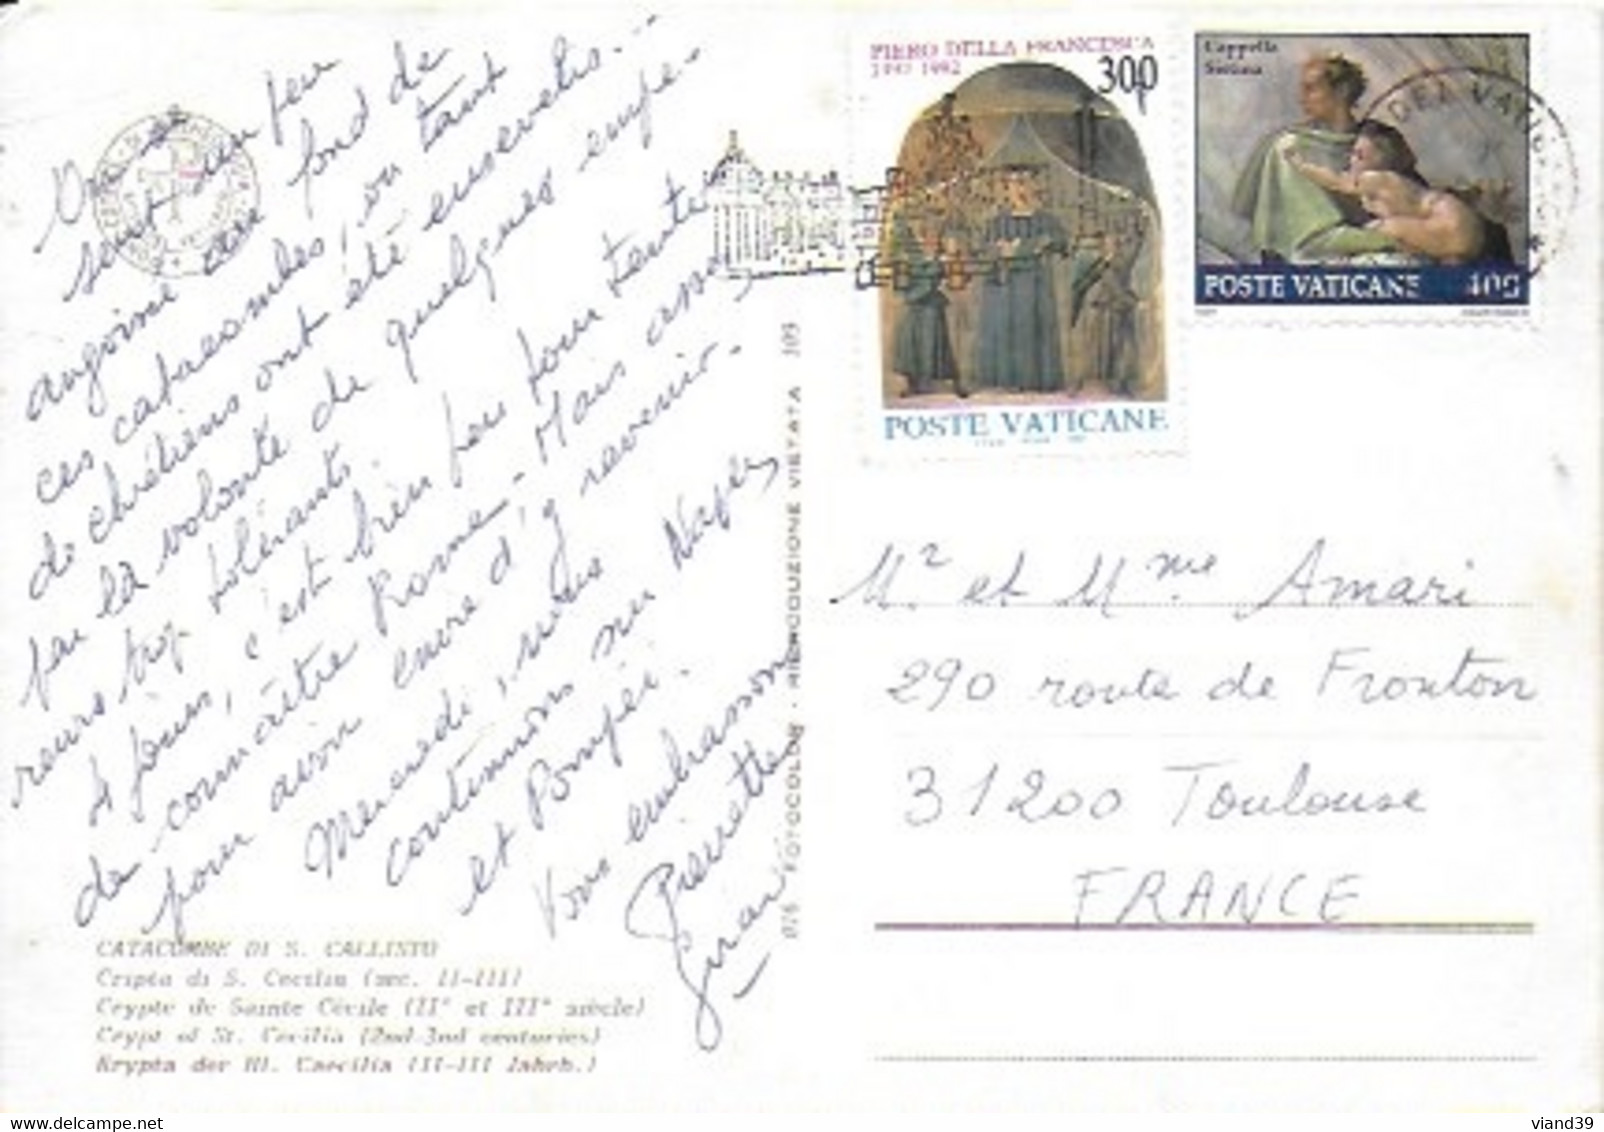 On se
sent un peu
angoissé au fond de
ces catacombes, où tant
de chrétiens ont été ensevelis...
par la volonté de quelques empe-
reurs trop tolérants.
4 jours, c'est bien peu pour tenter
de connaître Rome - Mais assez
pour avoir envie d'y revenir.
Mercredi, nous
continuons sur Naples
et Pompéi.
Vous embrassons
Pierrette
CATACOMBE DI S. CALLISTO
Cripta di S. Cecilia (sec. II-III)
Crypte de Sainte Cécile (IIe et IIIe siècle)
Crypt of St. Cecilia (2nd-3nd centuries)
Krypta der Hl. Caecilia (II-III Jahrh.)
076 FOTOCOLOR - RIPRODUZIONE VIETATA 105
PIERO DELLA FRANCESCA
1492 1992
300
POSTE VATICANE
Cappella
Sistina
POSTE VATICANE 400
DEL VATIC
Mr. et Mme Amari
290 route de Fronton
31200 Toulouse
FRANCE
viand39